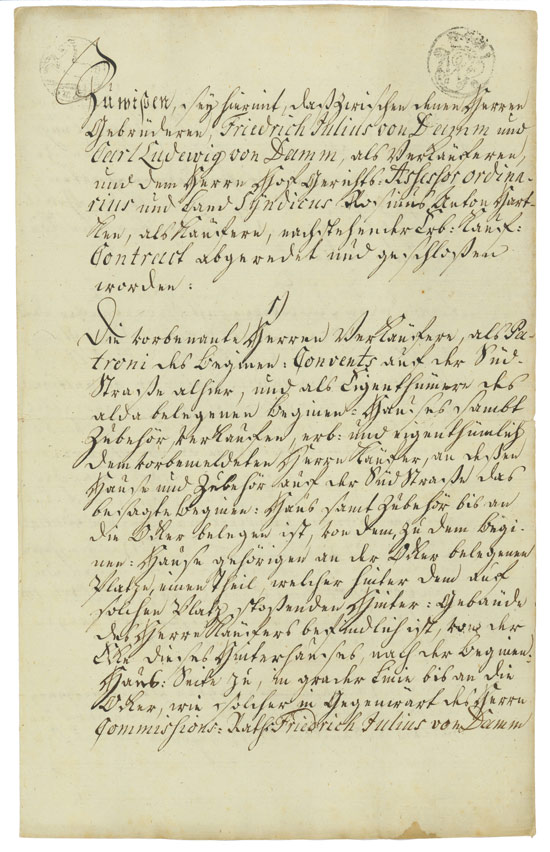 Zuwißen, sey hiermit, daß zwischen denen Herren
Gebrüderen, Friedrich Julius von Damm und
Carl Ludewig von Damm, als Verkäuferen,
und dem Herrn Hof Gerichts-Assessor ordina-
rius und Land Syndicus Anton Hart-
ken, als Käufere, nachstehender Erb-Kauf-
Contract abgeredet und geschloßen
worden:
1)
Die vorbenante Herren Verkäufere, als Pa-
troni des Beginen-Convents auf der Süd-
Straße alhier, und als Eigenthümere des
alda belegenen Beginen-Hauses sambt
Zubehör verkaufen, erb- und eigenthümlich
dem vorbemeldeten Herrn Käufer, an deßen
Hause und Zubehör auf der Süd Straße das
besagte Beginen-Haus samt Zubehör bis an
die Ocker belegen ist, von dem, zu dem Begi-
nen-Hause gehörigen an der Ocker belegenen
Platze, einen Theil, welcher hinter dem auf
solchen Platz stoßenden Hinter-Gebäude
des Herrn Käufers befindlich ist, von der
Ecke dieses Hinterhauses, nach der Beginen-
Haus-Seite zu, in grader Linie bis an die
Ocker, wie solcher in Gegenwart des Herrn
Commissions-Rath Friedrich Julius von Damm